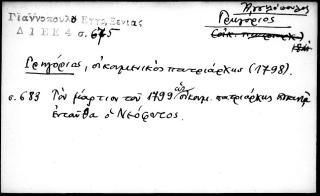 Γιαννοπούλου Ευγγ. Ξενίας
Δ 1 ΕΕ 4 σ. 675
Γρηγόριος
Γρηγόριος, οἰκουμενικὸς πατριάρχης (1798).
σ. 683 Τὸν μάρτιον τοῦ 1799 ὡς οἰκουμ. πατριάρχης
ἐνταῦθα ὁ Νεόφυτος.